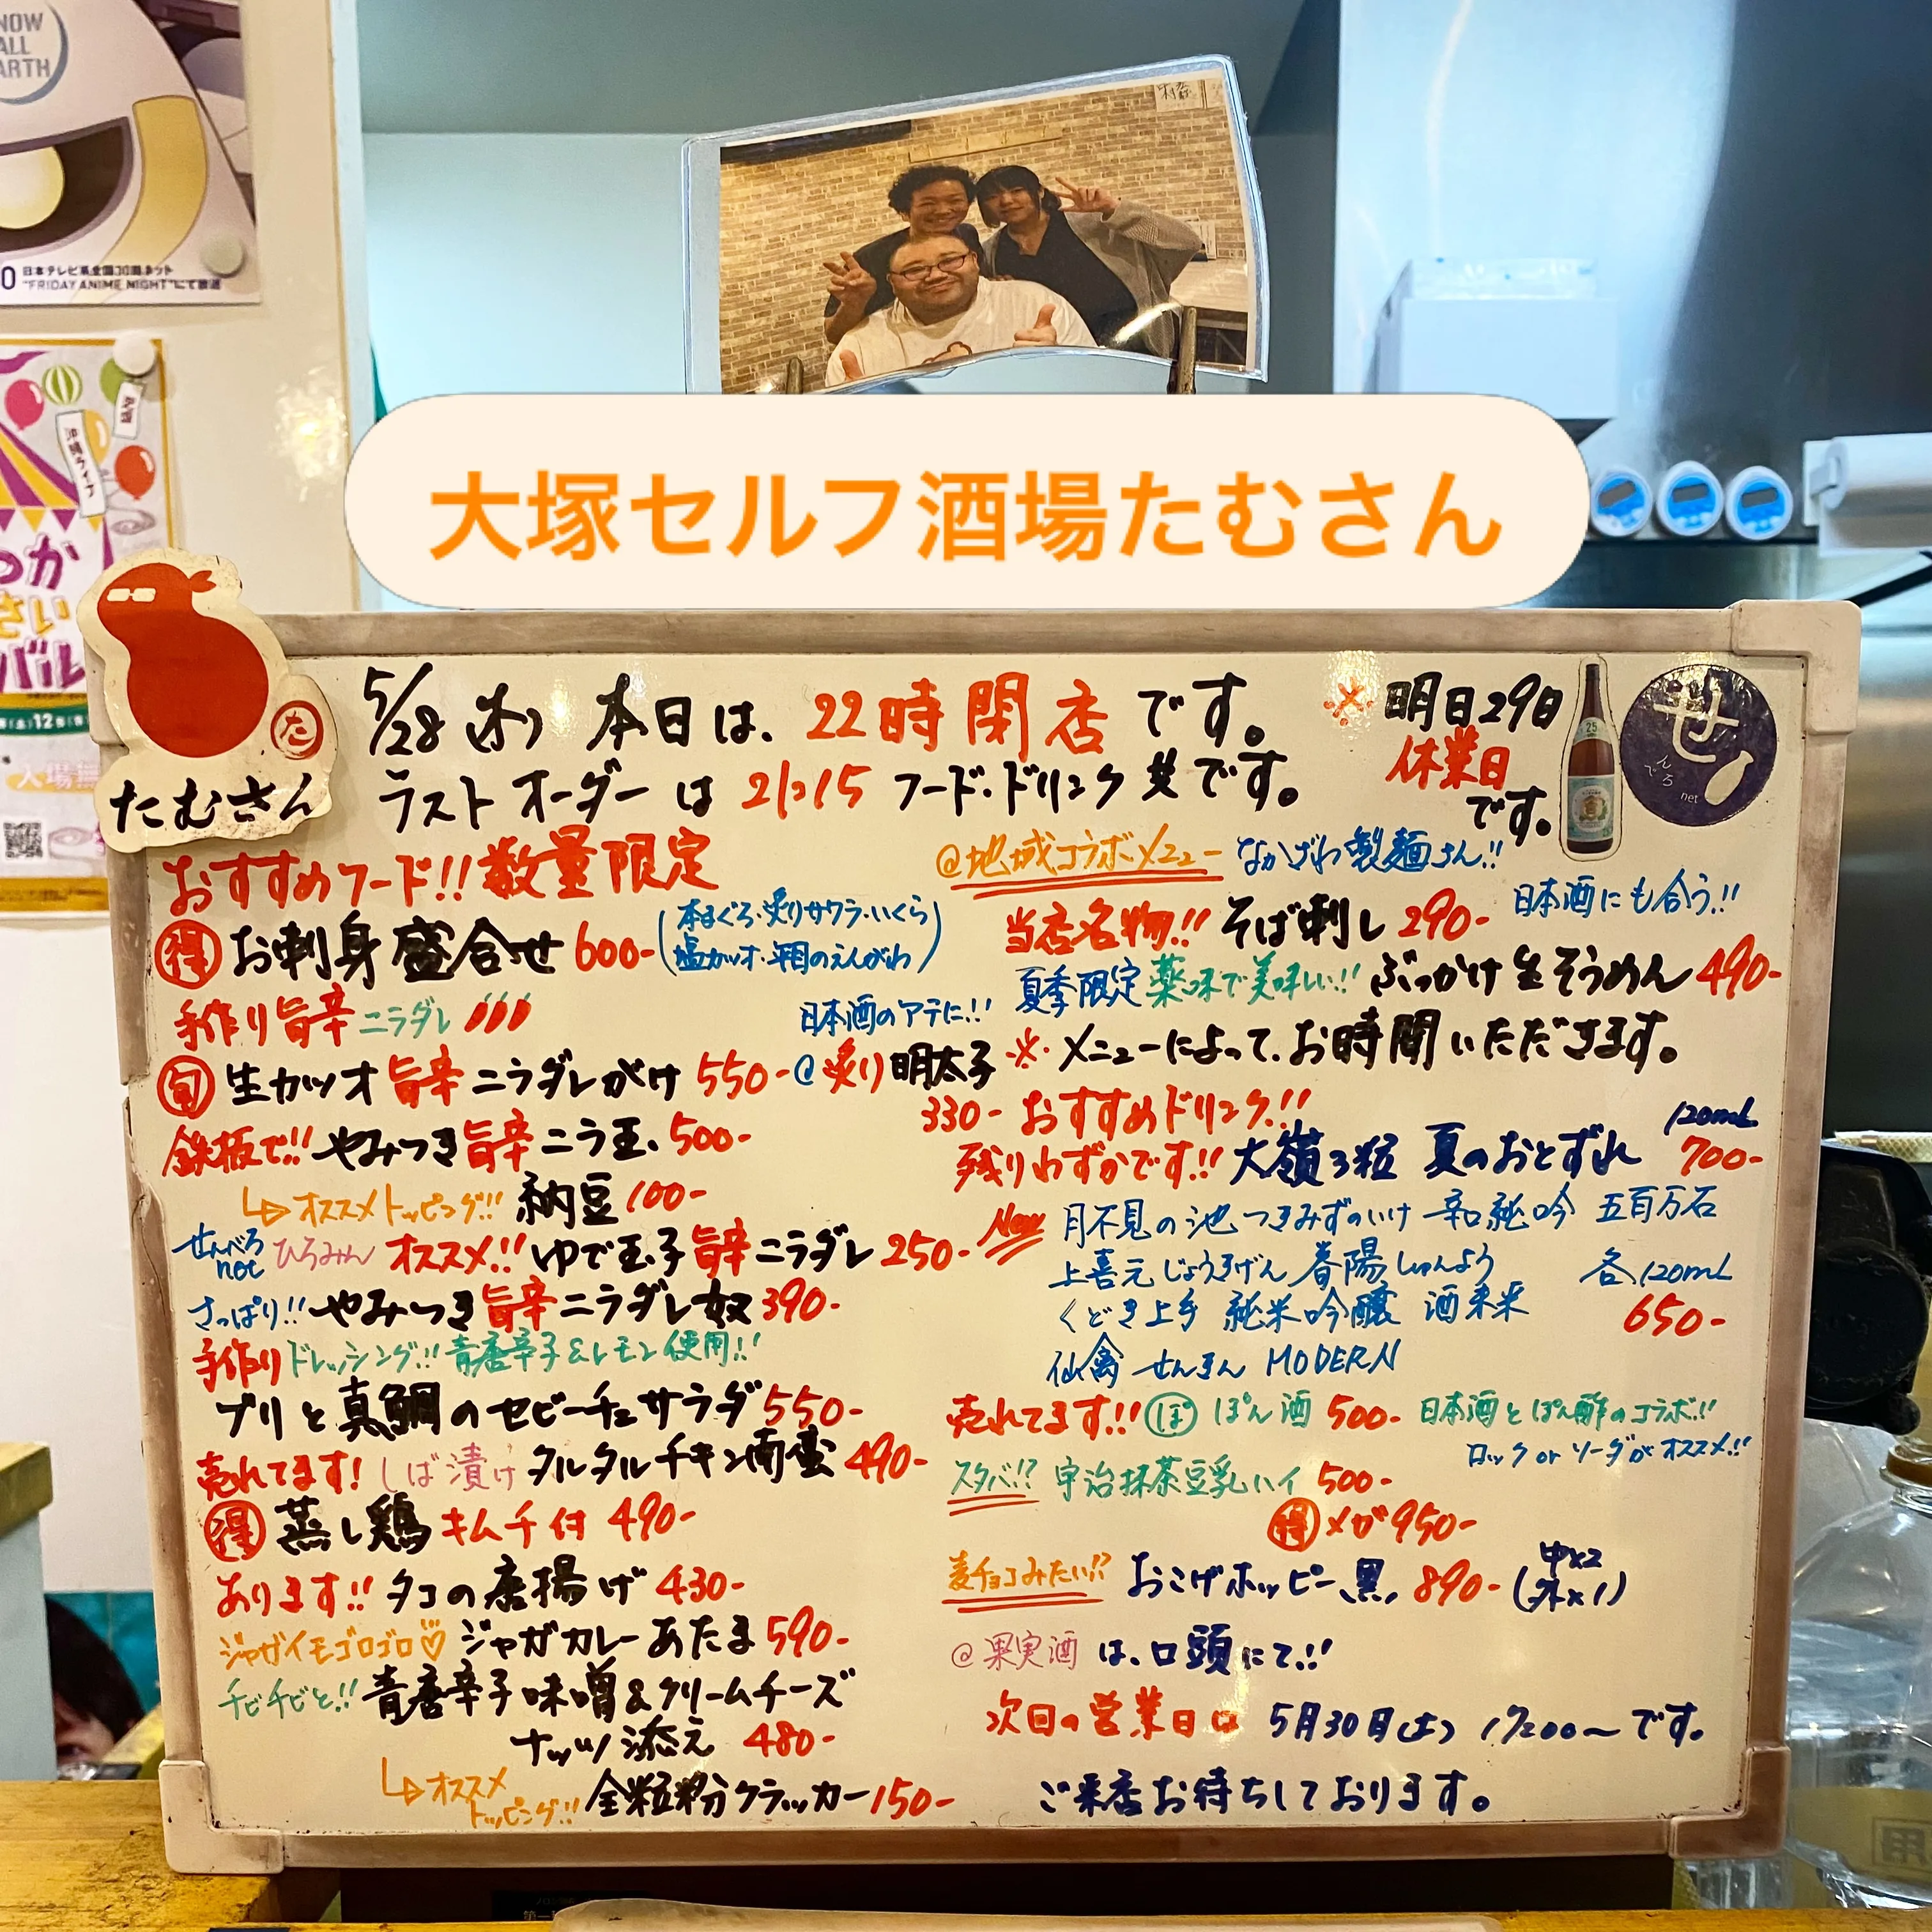 NOW
ALL
EARTH
日本テレビ系全国30局ネット
"FRIDAY ANIME NIGHT"にて放送
大塚セルフ酒場たむさん
た
たむさん
5/28(木) 本日は、22時閉店です。
ラストオーダーは21:15 フード・ドリンク共です。
※明日29日
休業日
です。
せ
んべろ
net
おすすめフード!! 数量限定
得 お刺身盛合せ 600-
(本まぐろ・炙りサワラ・いくら
塩カツオ・平目のえんがわ)
手作り旨辛ニラダレ
旬 生カツオ旨辛ニラダレがけ 550-
日本酒のアテに!!
@炙り明太子
330-
鉄板で!! やみつき旨辛ニラ玉 500-
↳オススメトッピング!! 納豆 100-
せんべろ
net
ひろみん オススメ!! ゆで玉子旨辛ニラダレ 250-
さっぱり!! やみつき旨辛ニラダレ奴 390-
手作りドレッシング!! 青唐辛子&レモン使用!!
ブリと真鯛のセビーチェサラダ 550-
売れてます! しば漬けタルタルチキン南蛮 490-
得 蒸し鶏キムチ付 490-
あります!! タコの唐揚げ 430-
ジャガイモゴロゴロ♡ ジャガカレーあたま 590-
チビチビと!! 青唐辛子味噌&クリームチーズ
ナッツ添え 480-
↳オススメ
トッピング!! 全粒粉クラッカー 150-
@地域コラボメニュー なかざわ製麺さん!!
当店名物!! そば刺し 290-
日本酒にも合う!!
夏季限定 薬味で美味しい!! ぶっかけ生そうめん 490-
※メニューによって、お時間いただきます。
おすすめドリンク!!
残りわずかです!! 大嶺3粒 夏のおとずれ
120mL
700-
New 月不見の池 つきみずのいけ 辛口純吟 五百万石
上喜元 じょうきげん 春陽 しゅんよう
くどき上手 純米吟醸 酒未来
仙禽 せんきん MODERN
各120mL
650-
売れてます!! ぽ ぽん酒 500- 日本酒とぽん酢のコラボ!!
ロック or ソーダがオススメ!!
スタバ!? 宇治抹茶豆乳ハイ 500-
得 メガ 950-
麦チョコみたい!? おこげホッピー黒 890- (中×2
外×1)
@果実酒 は、口頭にて!!
次回の営業日は 5月30日(土) 17:00〜です。
ご来店お待ちしております。